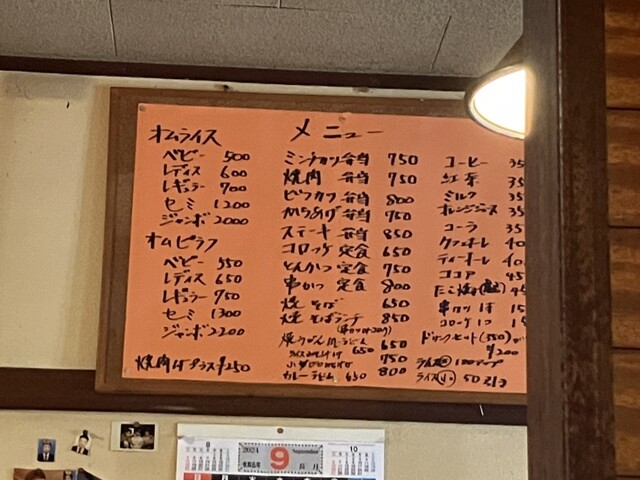 メニュー
オムライス
ベビー 500
レディス 600
レギュラー 700
セミ 1200
ジャンボ 2000
オムピラフ
ベビー 550
レディス 650
レギュラー 750
セミ 1300
ジャンボ 2200
焼肉はプラス¥250
ミンチカツ弁当 750
焼肉弁当 750
ビフカツ弁当 800
からあげ弁当 750
ステーキ弁当 850
コロッケ定食 650
とんかつ定食 750
串かつ定食 800
焼そば 650
焼そばランチ 850
焼うどん 650
650
750
カレーうどん 650 800
コーヒー 35
紅茶 35
ミルク 35
オレンジジュース 35
コーラ 35
カフェオーレ 40
ティーオーレ 40
ココア 45
たこ焼 45
串カツ1本 15
コロッケ1つ 15
ドリンクセット(350)が
¥200
ライス大 100アップ
ライス小 50引き
8
2024
9
September
10